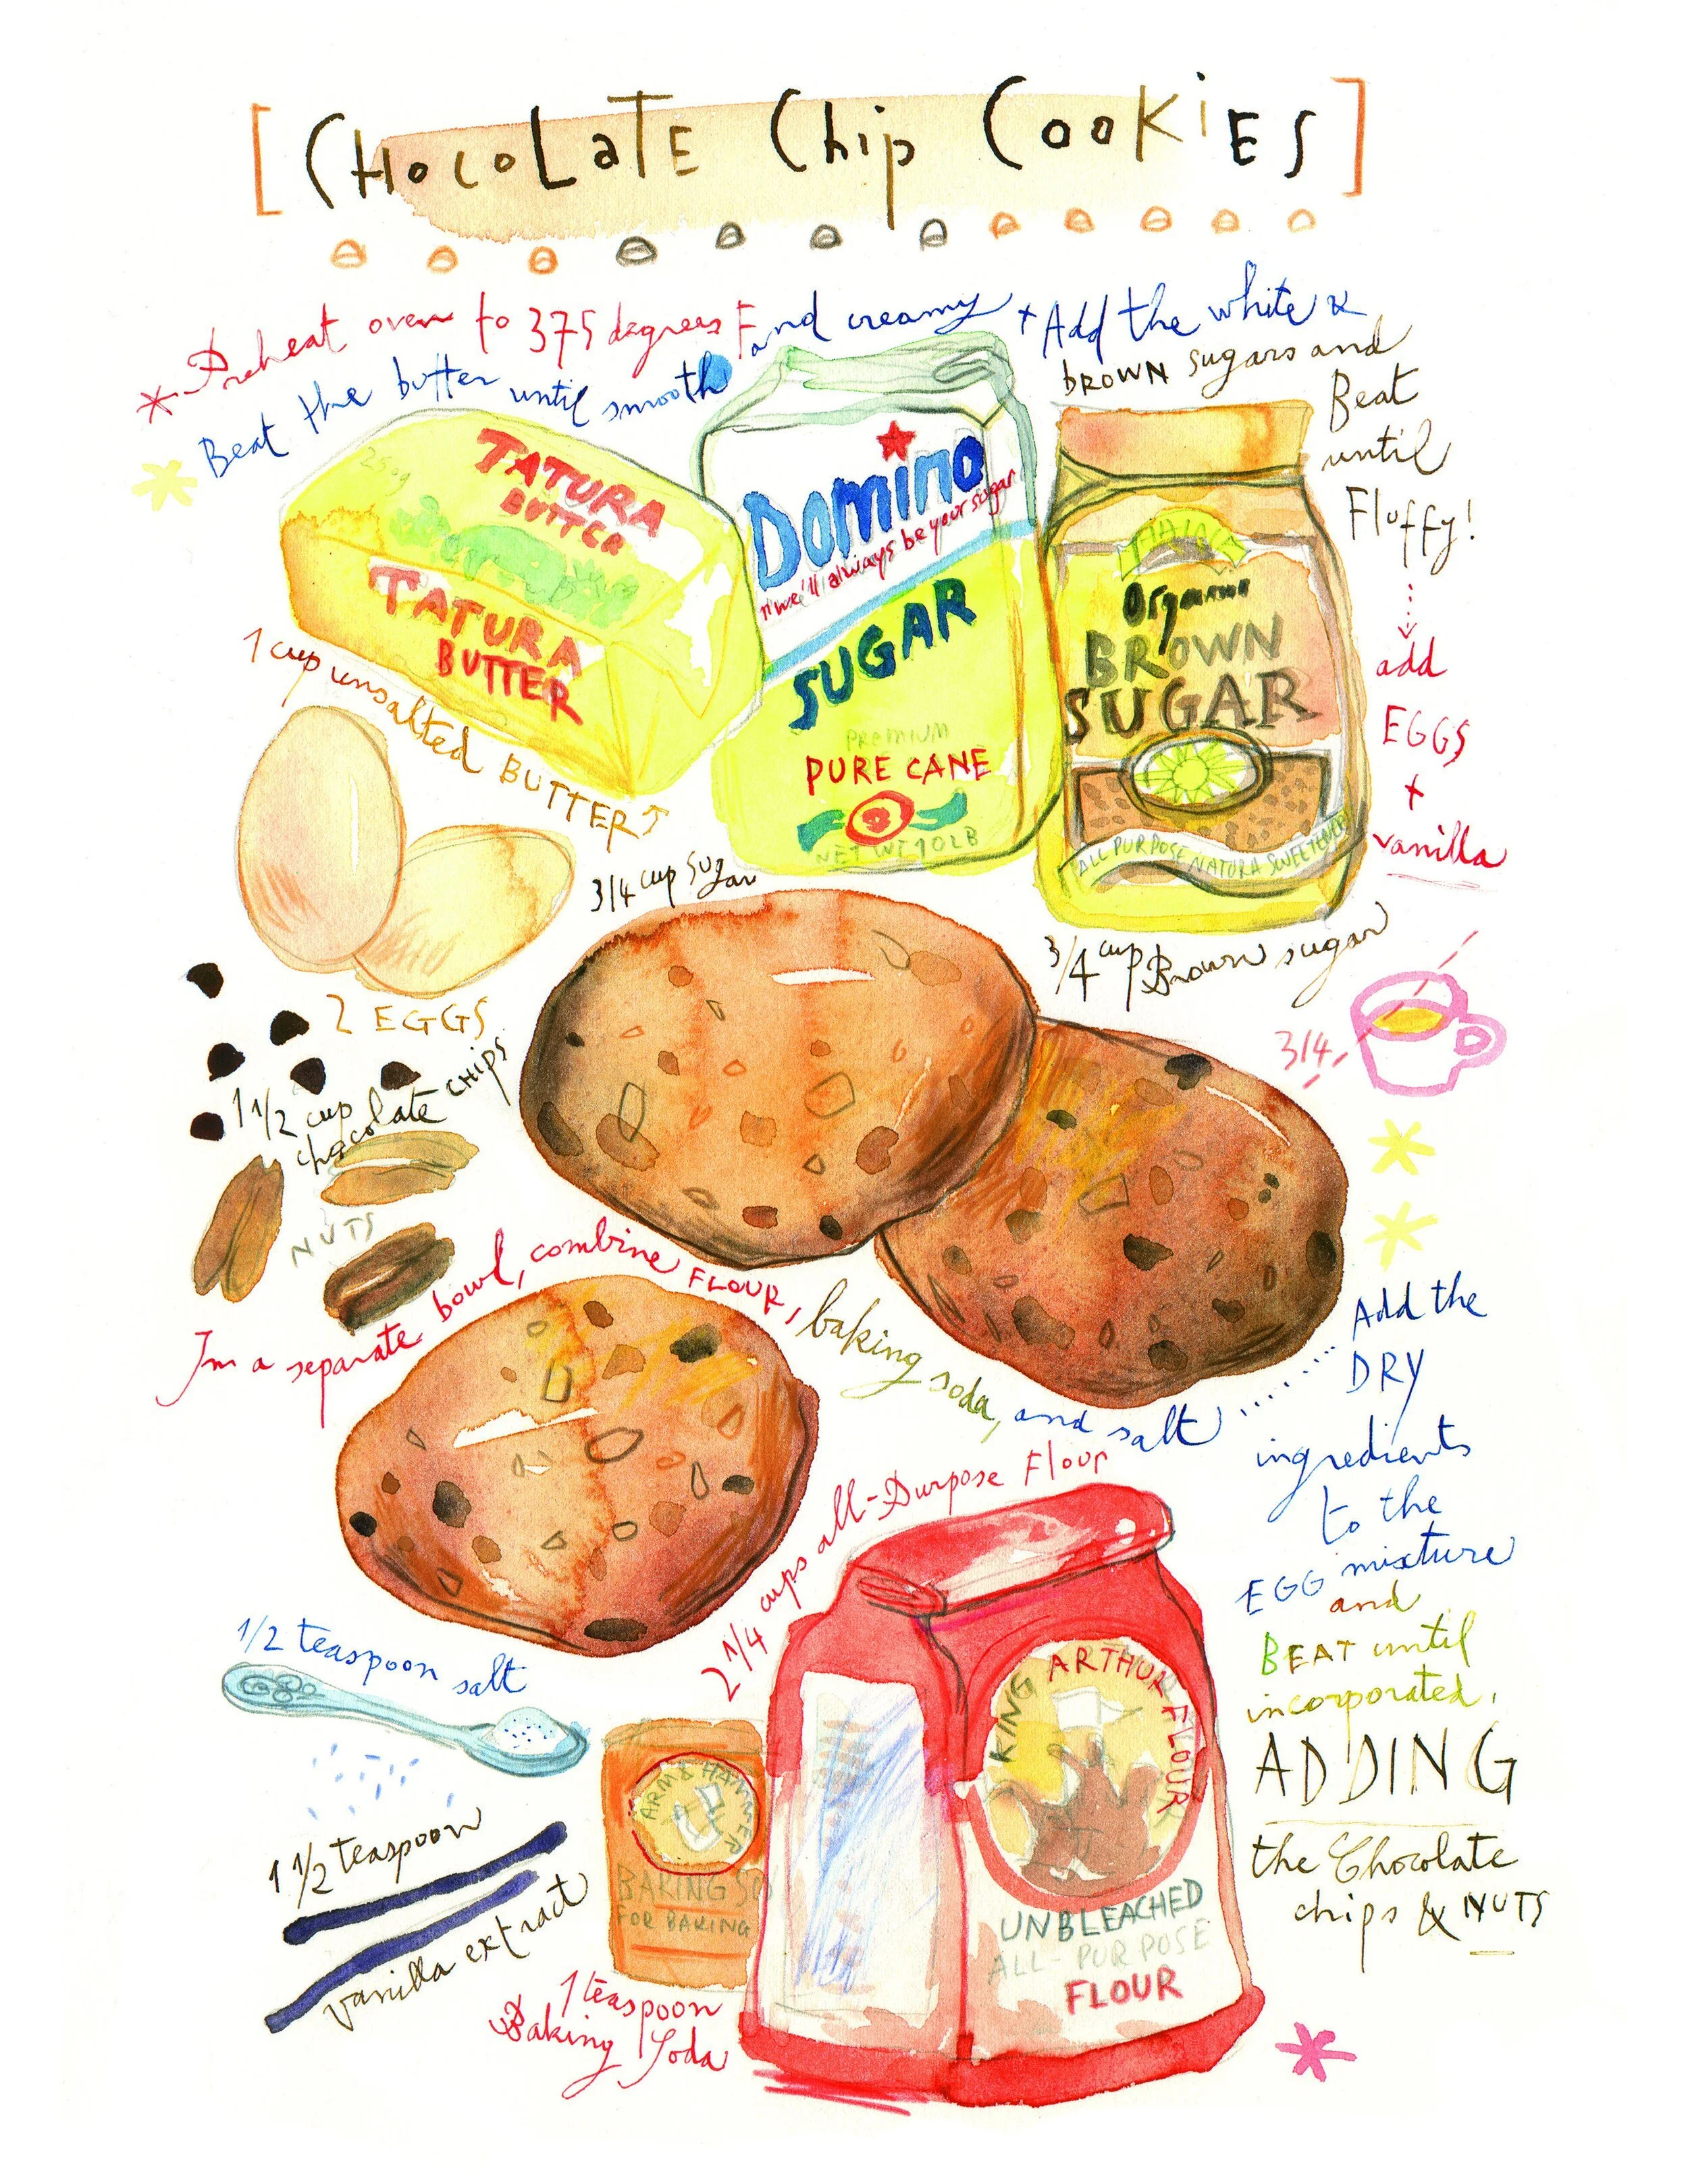 [CHocoLaTE Chip CooKiES]
* Preheat oven to 375 degrees F
Beat the butter until smooth and creamy
+ Add the white &
BROWN sugars and
Beat
until
Fluffy!
add
EGGS
+
vanilla
250g
TATURA
BUTTER
TATURA
BUTTER
1 cup unsalted BUTTER
Domino
n'we'll always be your sugar
SUGAR
PREMIUM
PURE CANE
NET WT 10LB
3/4 cup Sugar
Organic
BROWN
SUGAR
ALL PURPOSE NATURA SWEETENER
3/4 cup Brown sugar
3/4
2 EGGS
1 1/2 cup
chocolate CHIPS
NUTS
In a separate bowl, combine FLOUR, baking soda, and salt
Add the
DRY
ingredients
to the
EGG mixture
and
BEAT until
incorporated.
ADDING
the Chocolate
chips & NUTS
2 1/4 cups all-Purpose Flour
KING ARTHUR FLOUR
UNBLEACHED
ALL-PURPOSE
FLOUR
1/2 teaspoon salt
1 1/2 teaspoon
vanilla extract
ARM & HAMMER
BAKING SO
FOR BAKING
1 teaspoon
Baking Soda